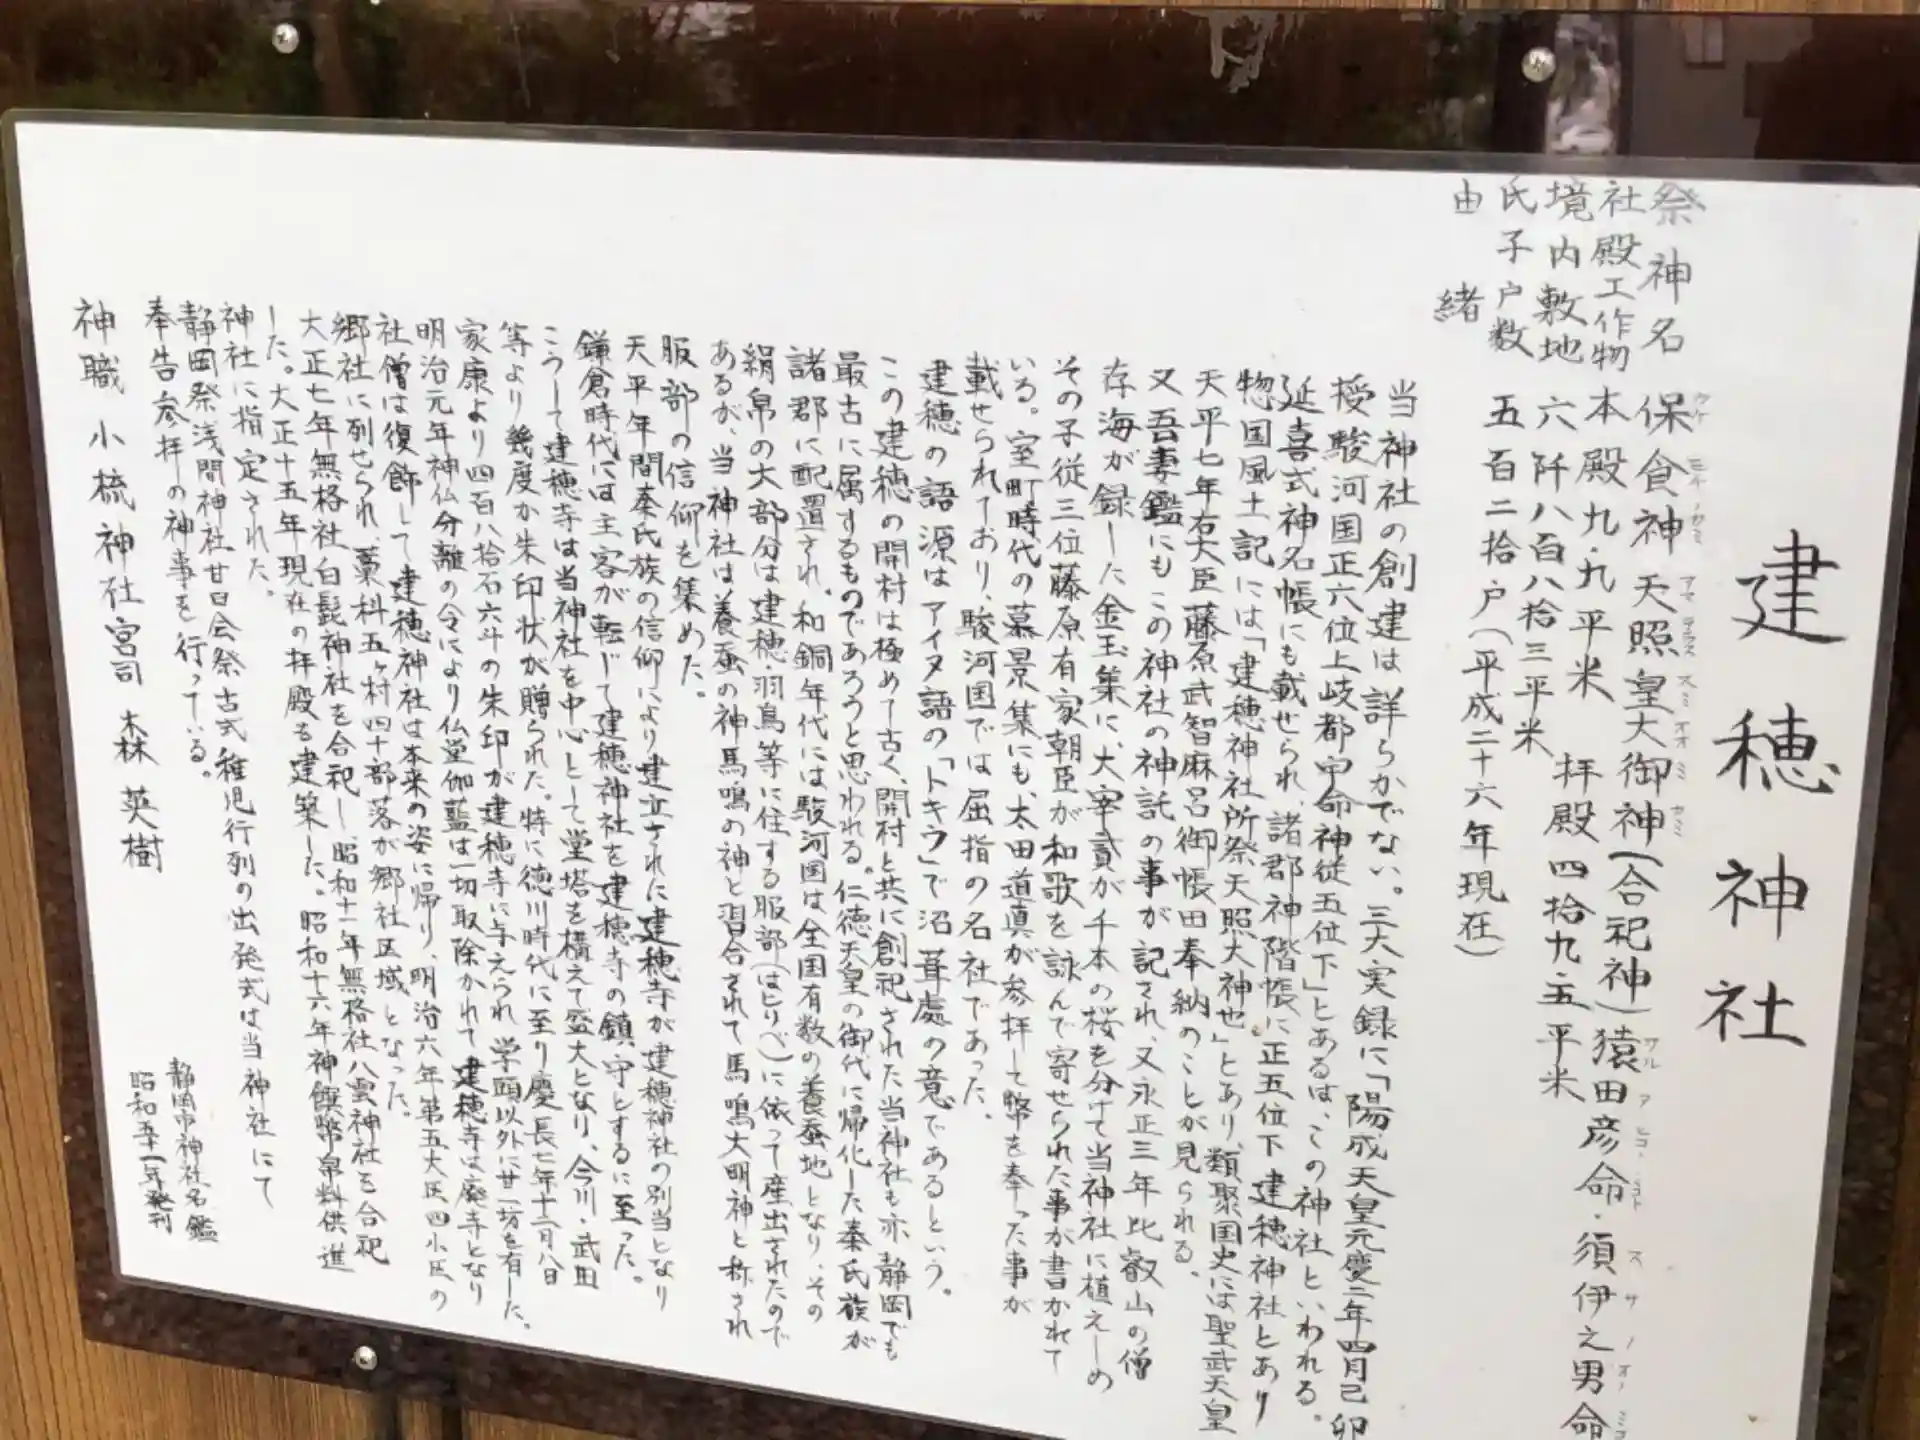 建穂神社
祭神名 保食神 天照皇大御神(合祀神)猿田彦命・須伊之男命
社殿工作物 本殿九・九平米 拝殿四拾九五平米
境内敷地 六阡八百八拾三平米
氏子戸数 五百二拾戸(平成二十六年現在)
由緒
当神社の創建は詳らかでない。三大実録に「陽成天皇元慶二年四月己卯
授駿河国正六位上岐都宇命神従五位下」とあるは、この神社といわれる。
延喜式神名帳にも載せられ、諸郡神階帳に正五位下建穂神社とあり
惣国風土記には「建穂神社所祭天照大神也」とあり、類聚国史には聖武天皇
天平七年右大臣藤原武智麻呂御帳田奉納のことが見られる。
又吾妻鑑にもこの神社の神託の事が記され、又永正三年比叡山の僧
存海が録した金玉集に、大宰貳が千本の桜を分けて当神社に植えしめ
その子従三位藤原有家朝臣が和歌を詠んで寄せられた事が書かれて
いる。室町時代の慕景集にも、太田道真が参拝して幣を奉った事が
載せられており、駿河国では屈指の名社であった。
建穂の語源はアイヌ語の「トキウ」で沼葺處の意であるという。
この建穂の開村は極めて古く、開村と共に創祀された当神社も亦静岡でも
最古に属するものであろうと思われる。仁徳天皇の御代に帰化した秦氏族が
諸郡に配置され、和銅年代には駿河国は全国有数の養蚕地となり、その
絹帛の大部分は建穂、羽鳥等に住する服部(はとりべ)に依って産出されたので
あるが、当神社は養蚕の神馬鳴の神と習合されて馬鳴大明神と称され
服部の信仰を集めた。
天平年間秦氏族の信仰により建立されに建穂寺が建穂神社の別当となり
鎌倉時代には主客が転じて建穂神社を建穂寺の鎮守とするに至った。
こうして建穂寺は当神社を中心として堂塔を構えて盛大となり、今川・武田
等より幾度か朱印状が贈られた。特に徳川時代に至り慶長七年十二月八日
家康より四百八拾石六斗の朱印が建穂寺に与えられ学頭以外に廿一坊を有した。
明治元年神仏分離の令により仏堂伽藍は一切取除かれて建穂寺は廃寺となり
社僧は復飾して建穂神社は本来の姿に帰り、明治六年第五大区四小区の
郷社に列せられ、藁科五ヶ村四十部落が郷社区域となった。
大正七年無格社白髭神社を合祀し、昭和十一年無格社八雲神社を合祀
した。大正十五年現在の拝殿を建築した。昭和十六年神饌幣帛料供進
神社に指定された。
静岡祭浅間神社廿日会祭古式稚児行列の出発式は当神社にて
奉告参拝の神事を行っている。
静岡市神社名鑑
昭和五十一年発刊
神職 小梳神社宮司 森 英樹